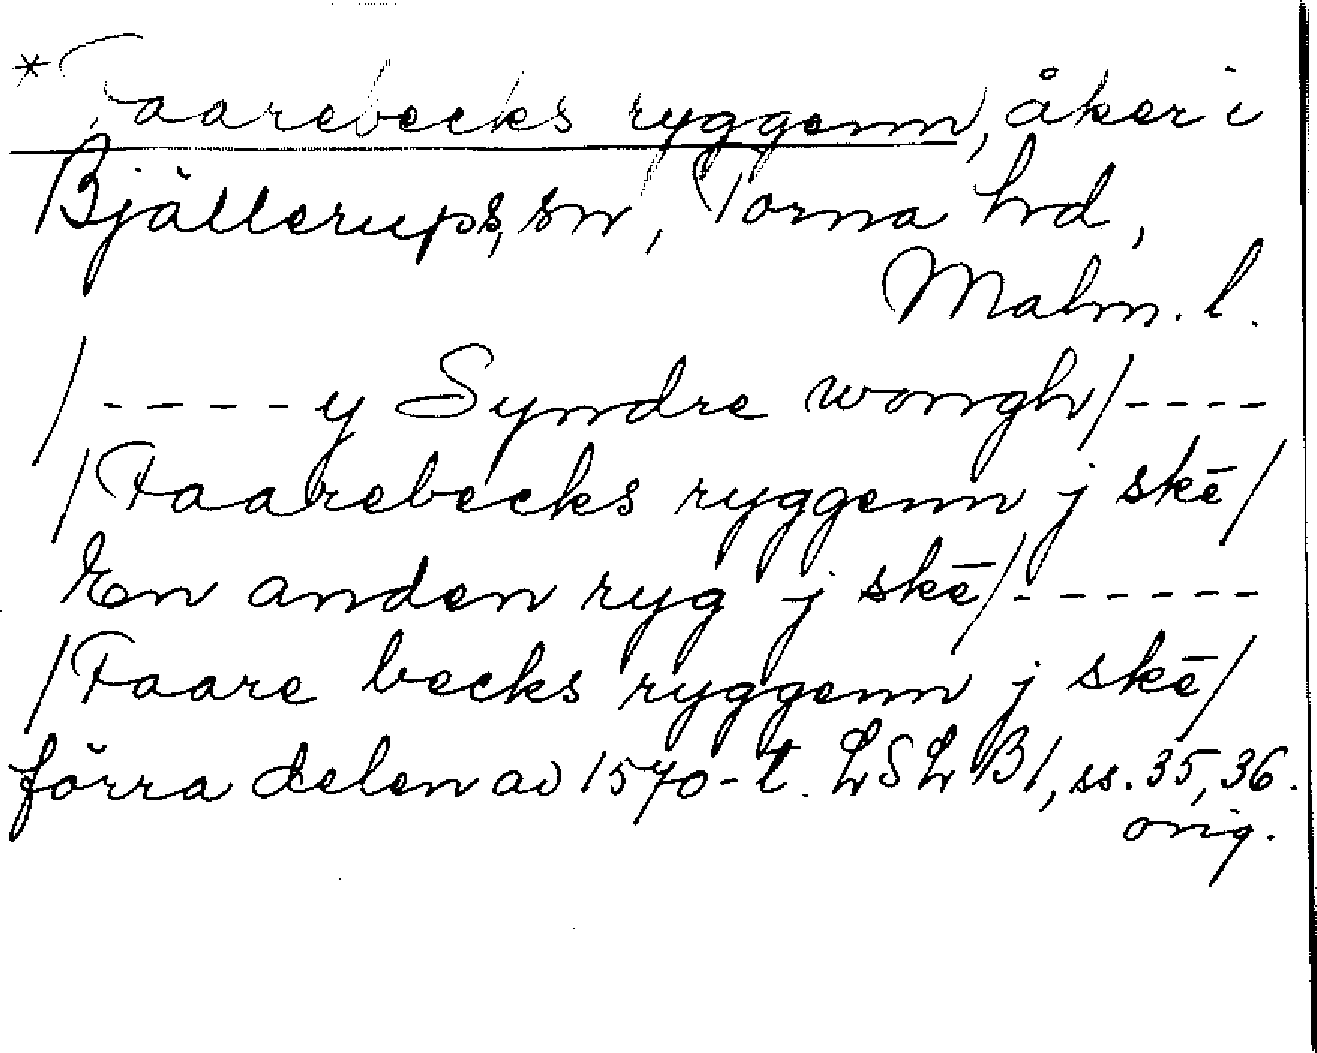 *Faarebecks ryggenn, åker i
Bjällerups, sn, Torna hd,
Malm. l.
/----- y Syndre wongh/----
/Faarebecks ryggenn j skē/
En anden ryg j skē/------
/Faare becks ryggenn j skē/
förra delen av 1570-t. LSLB1, ss. 35, 36.
orig.